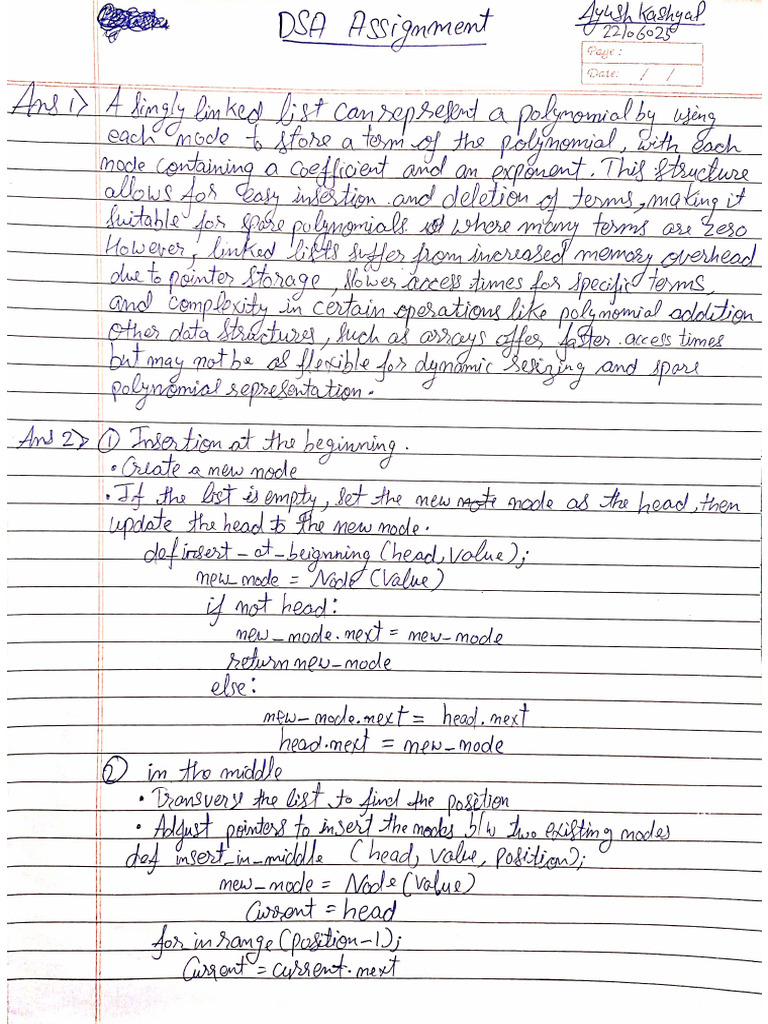 DSA Assignment
Ayush Kashyap
22/06025
Page:
Date: / /
Ans 1) A singly linked list can represent a polynomial by using
each node to store a term of the polynomial, with each
node containing a coefficient and an exponent. This structure
allows for easy insertion and deletion of terms, making it
suitable for spare polynomials where many terms are zero
However, linked lists suffer from increased memory overhead
due to pointer storage, slower access times for specific terms,
and complexity in certain operations like polynomial addition
other data structures, such as arrays offer faster access times
but may not be as flexible for dynamic resizing and spare
polynomial representation.
Ans 2) ① Insertion at the beginning.
• Create a new node
• If the list is empty, set the new note node as the head, then
update the head to the new node.
def insert_at_beignning (head, value);
new_node = Node (value)
if not head:
new_node.next = new_node
return new_node
else:
new_node.next = head.next
head.next = new_node
② in the middle
• Transvery the list to find the position
• Adjust pointers to insert the nodes b/w two existing nodes
def insert_in_middle (head, value, position);
new_node = Node (value)
Current = head
for_in range (position-1);
Current = current.next